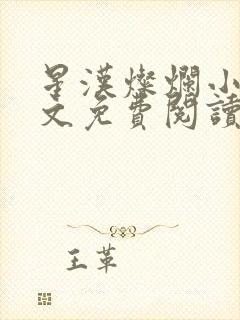 星漢燦爛小
文免費閱讀
王革